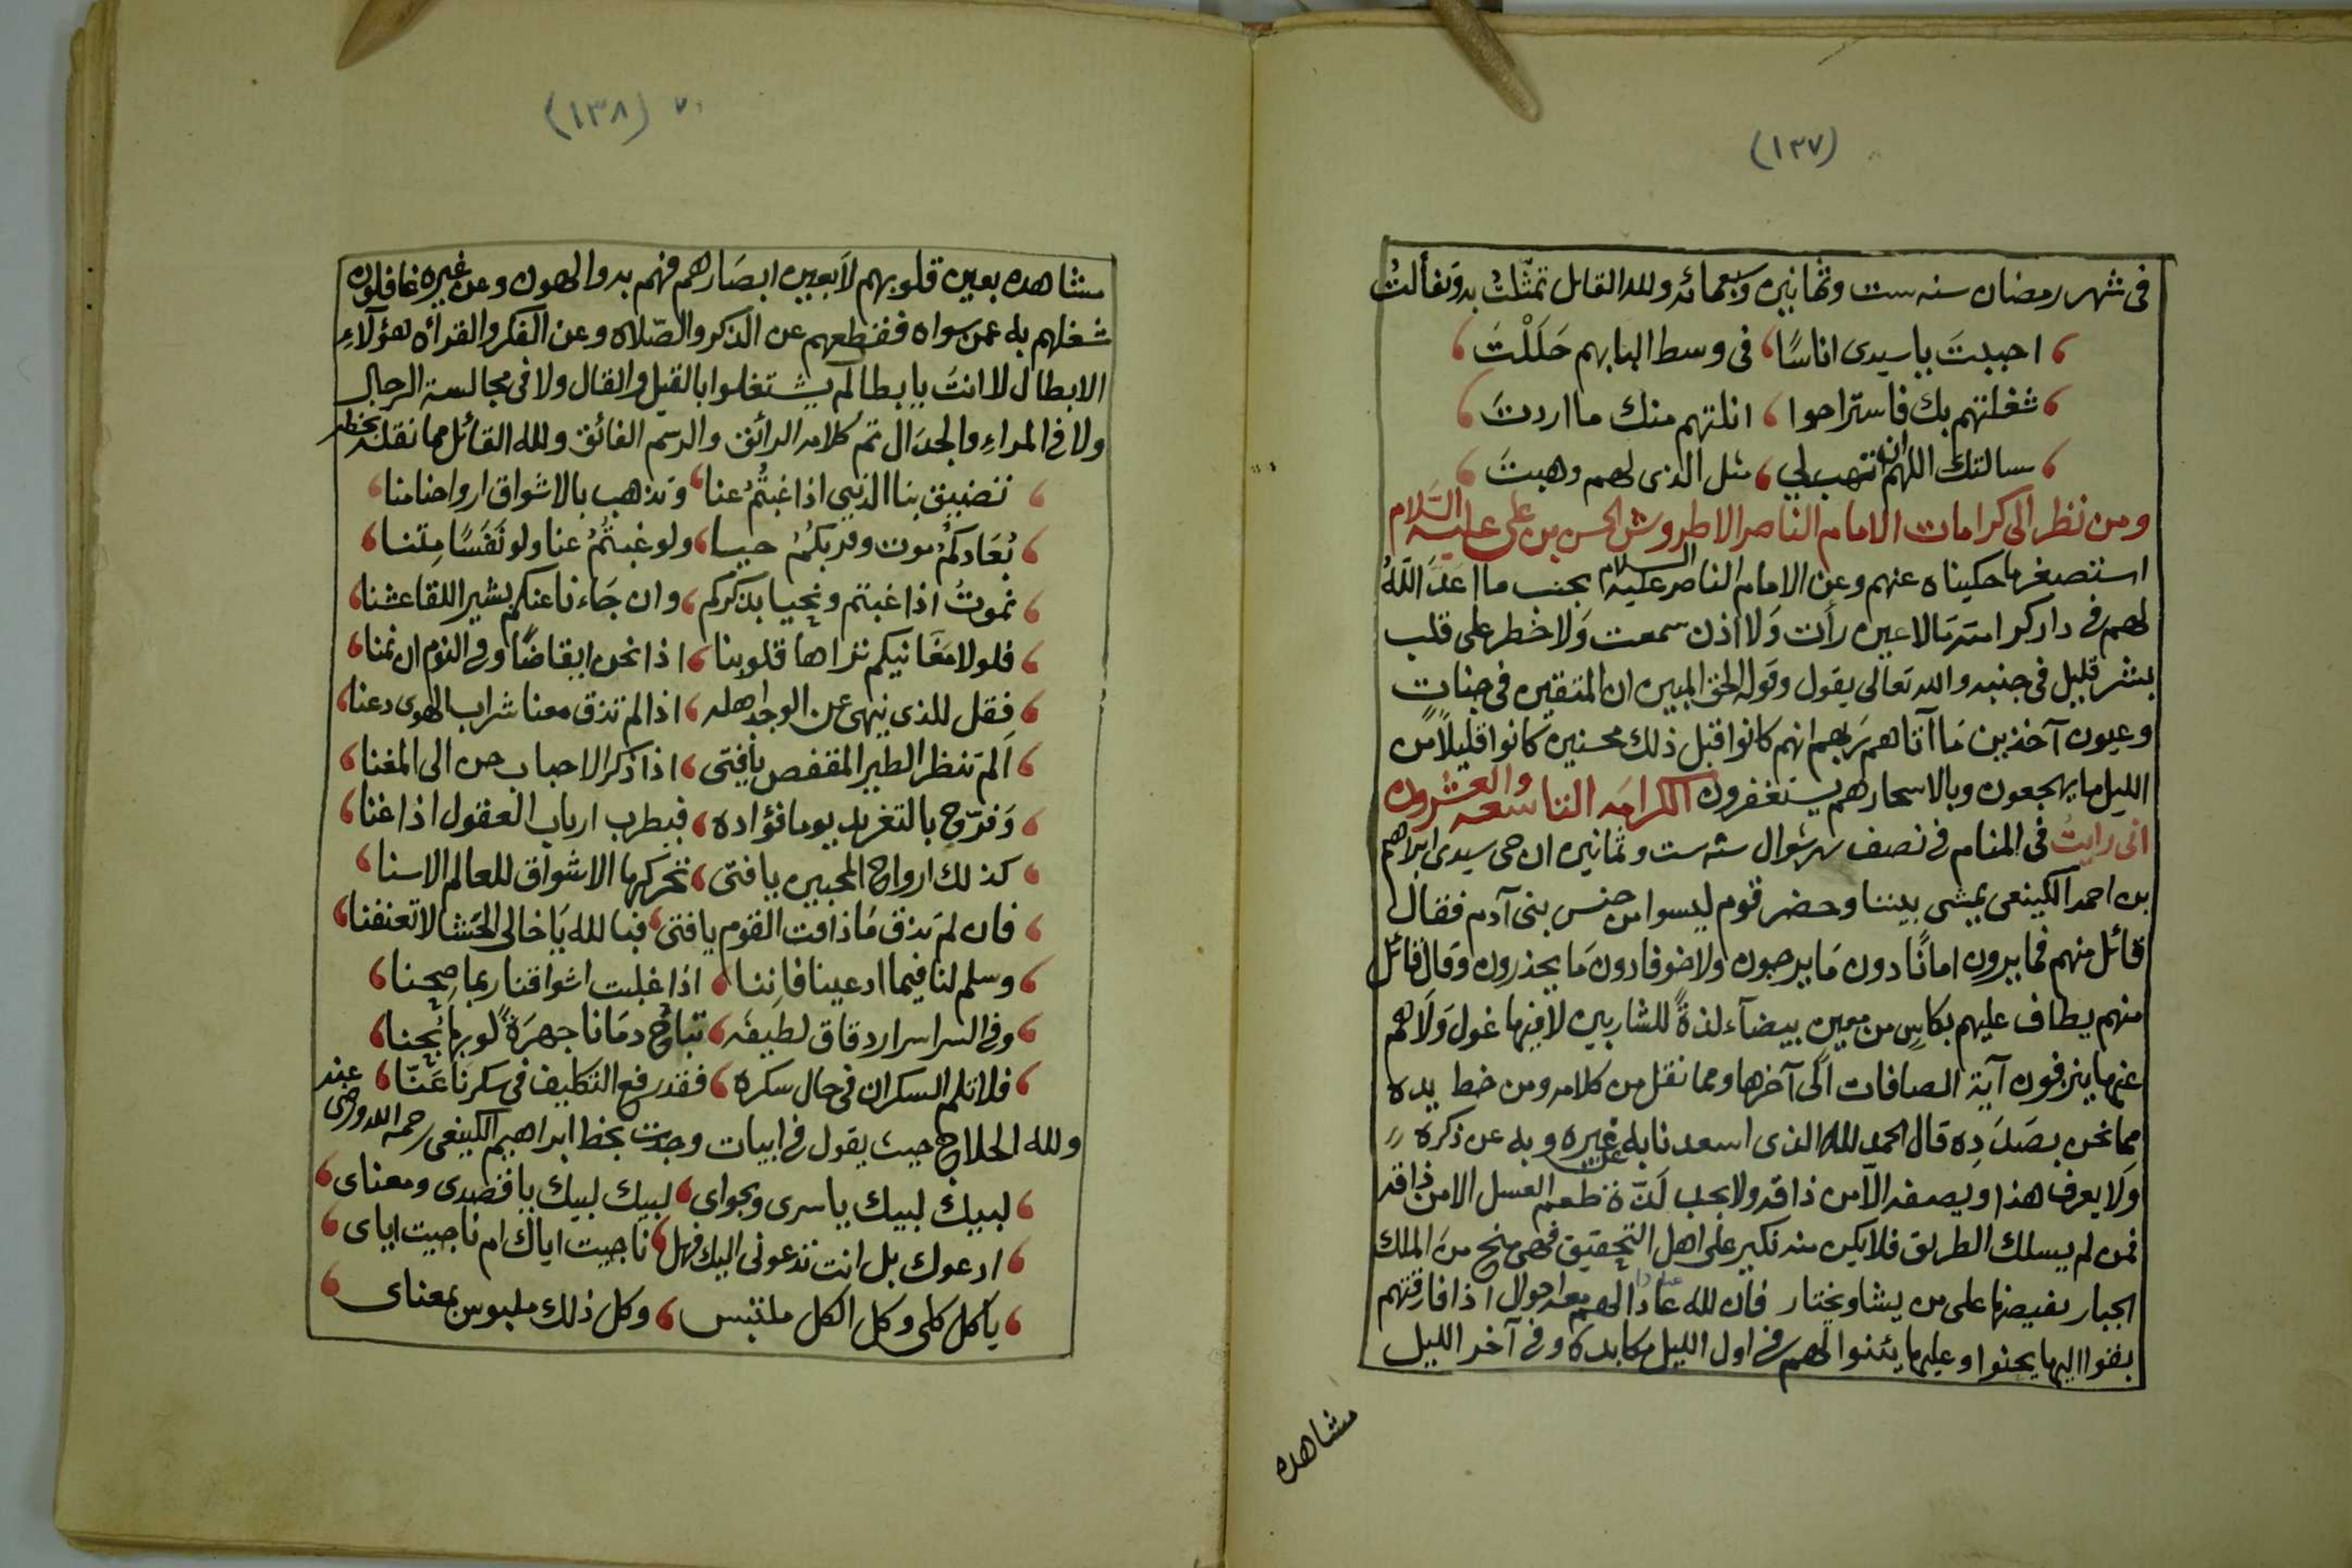 (١٣٧)
فى شهر رمضان سنه ست وثمانين وسبعمائه ولله القائل تمثلت به وتفألت
احببت يا سيدى اناسًا، فى وسط البابهم حَلَلْتَ
شغلتهم بك فاستراحوا، انلتهم منك ما اردتَ
سالتك اللهم ان تهب لي، مثل الذى لهم وهبتَ
ومن نظر الى كرامات الامام الناصر الاطروش الحسن بن على عليه السَّلام
استصغر ما حكيناه عنهم وعن الامام الناصر عليه السلام بجنب ما اعَدَّ اللَّهُ
لهم فى دار كرامته ما لا عين رأت وَلا اذن سمعت وَلا خطر على قلب
بشر قليل فى جنبه والله تعالى يقول وقوله الحق المبين ان المتقين فى جنات
وعيون آخذين مَا آتاهم ربهم انهم كانوا قبل ذلك محسنين كانوا قليلاً من
الليل ما يهجعون وبالاسحار هم يستغفرون الكرامه التاسعه والعشرون
انى رايتُ فى المنام فى نصف شهر شوال سنه ست وثمانين ان حى سيدى ابراهيم
بن احمد الكينعى يمشى بيننا وحضر قوم ليسوا من جنس بنى آدم فقال
قائل منهم فما يرون امانًا دون مَا يرجون ولا خوفا دون مَا يحذرون وقال قائل
منهم يطاف عليهم بكاسٍ من معين بيضآء لذةً للشاربين لا فيها غول وَلَا هم
عنها ينزفون آية الصافات الى آخرها ومما نقل من كلامه ومن خط يده
مما نحن بصَدَدِه قال الحمد لله الذى اسعدنا به عن غيره وبه عن ذكره
وَلا يعرف هذا ويصفه الّا من ذاقه ولا يجب لَذّة طعم العسل الا من ذاقه
فمن لم يسلك الطريق فلا يكن منه نكير على اهل التحقيق فهى منح من الملك
الجبار يفيضها على من يشا ويختار فان لله عبادا لهم معه احوال اذا فارقتهم
بقوا اليها يحنوا وعليها يئنوا لهم فى اول الليل مكابده وفى آخر الليل
مشاهده
(١٣٨) ٧٠
مشاهده بعين قلوبهم لَا بعين ابصَارهم فهم به والهون وعن غيره غافلون
شغلهم به عمن سواه فقطعهم عن الذكر والصّلاه وعن الفكر والقرأه هؤلآءِ
الابطال لا انتَ يا بطال لم يشتغلوا بالقيل والقال ولا فى مجالسة الرجال
ولا فى المراءِ والجدَال تم كلامه الرائق والرسم الفائق ولله القائل مما نقلته بخطه
تضيق بنا الدنيى اذا غبتُمُ عنا، وتذهب بالاشواق ارواحنا منا
بُعَادكمُ موت وقربكمُ حيا، ولو غبتُمُ عنا ولو نَفَسًا مِتنا
نموتُ اذا غبتم ونحيا بذكركم، وان جَاءنا عنكم بشير اللقا عشنا
فلولا مَعَانيكم نراها قلوبنا، اذا نحن ايقاضًا وفى النوم ان نمنا
فقل للذى ينهى عن الوجد اهله، اذا لم تذق معنا شراب الهوى دعنا
اَلم تنظر الطير المقفص يا فتى، اذا ذكر الاحباب حن الى المغنا
وَفرّج بالتغريد يوما فؤاده، فيطرب ارباب العقول اذا غنا
كذلك ارواح المحبين يا فتى، تحركها الاشواق للعالم الاسنا
فان لم تذق مَا ذاقت القوم يا فتى، فبالله يَا خالى الحَشا لا تعنفنا
وسلم لنا فيما ادعينا فاِننا، اذا غلبت اشواقنا ربما صِحنا
وفى السر اسرار دقاق لطيفه، تباحُ دمَانا جهرَةً لو بها بُحنا
فلا تلم السكران فى حال سكره، فقد رفع التكليف فى سكرنا عَنّا
ولله الحلاج حيث يقول فى ابيات وجدت بخط ابراهيم الكينعى رحمه الله ورضى عنه
لبيك لبيك يا سرى ونجواى، لبيك لبيك يا قصدى ومعناى
ادعوك بل انت تدعونى اليك فهل، ناجيت اياك ام ناجيت اياى
يا كل كلى وكل الكل ملتبس، وكل ذلك ملبوس بمعناى